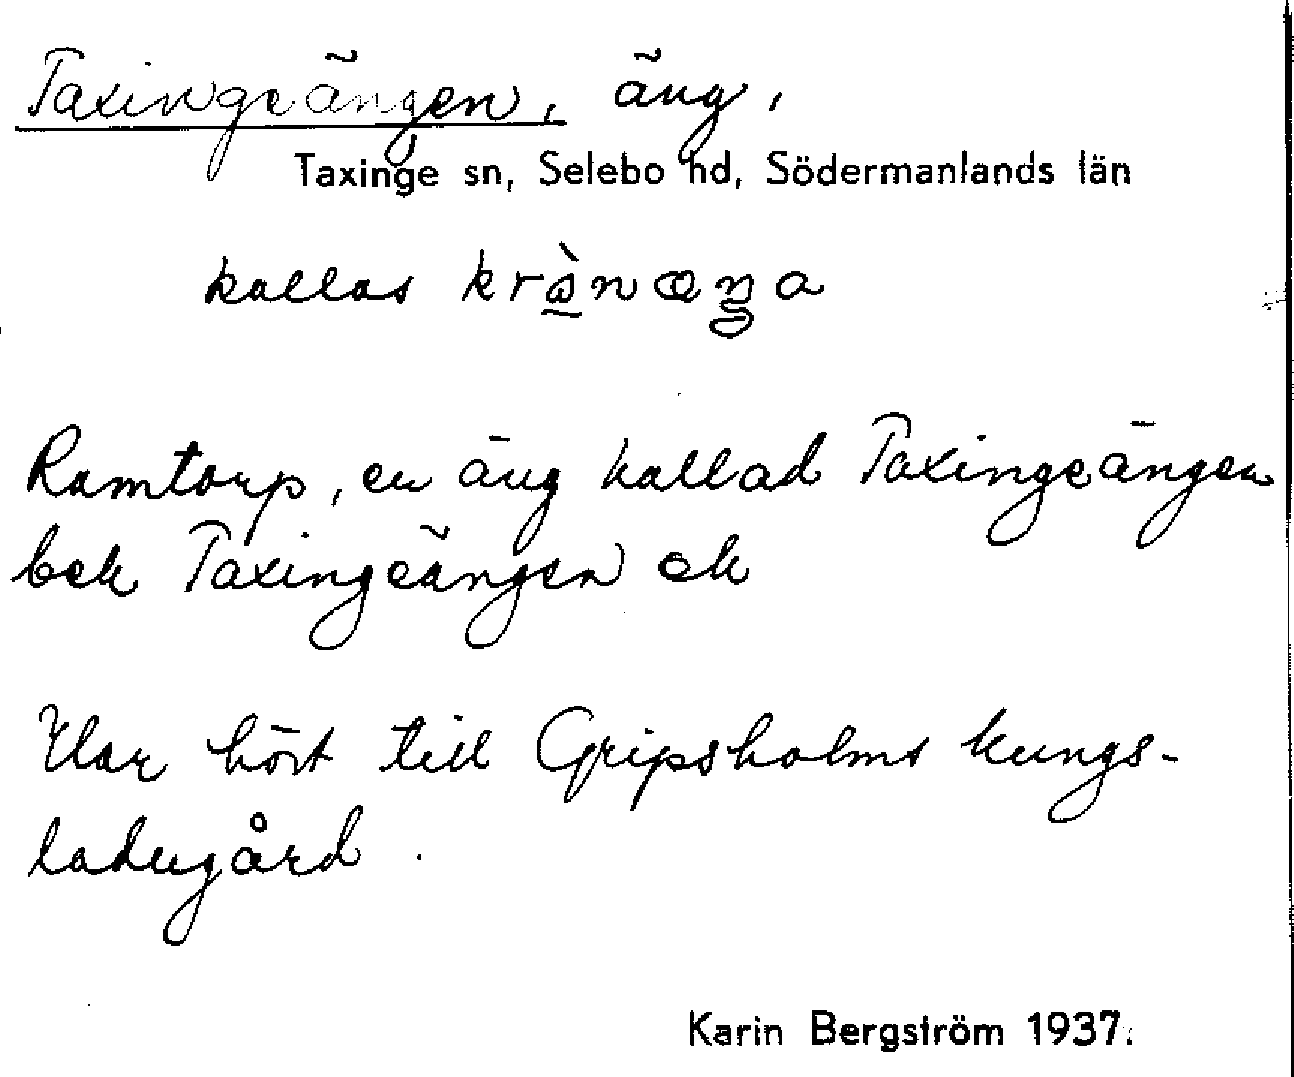 Taxingeängen, äng,
Taxinge sn, Selebo hd, Södermanlands län
kallas
Ramtorp, en äng kallad Taxingeängen
bek Taxingeängen ek
Har hört till Gripsholms kungs-
ladugård.
Karin Bergström 1937.